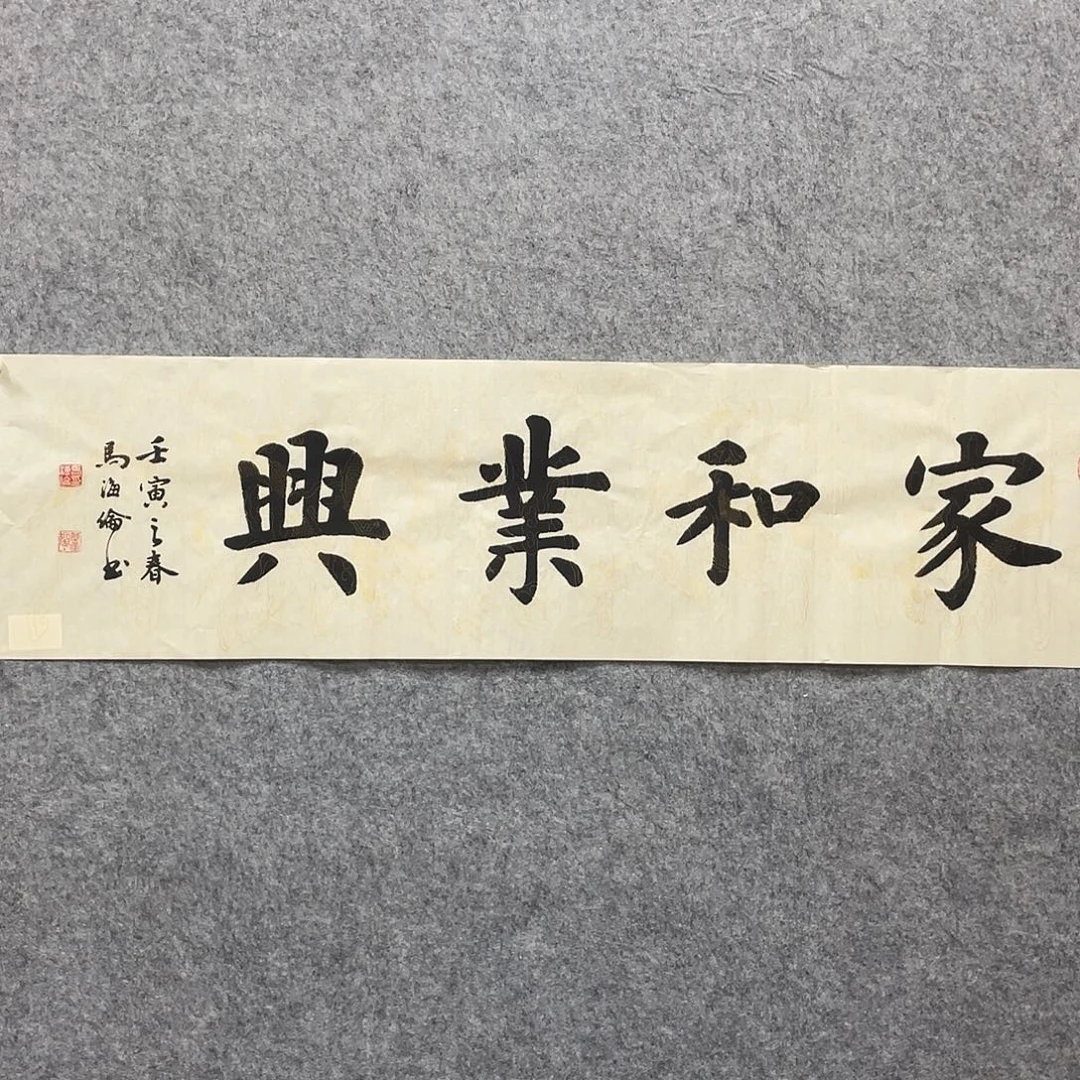 家和業興
壬寅之春
馬海倫书